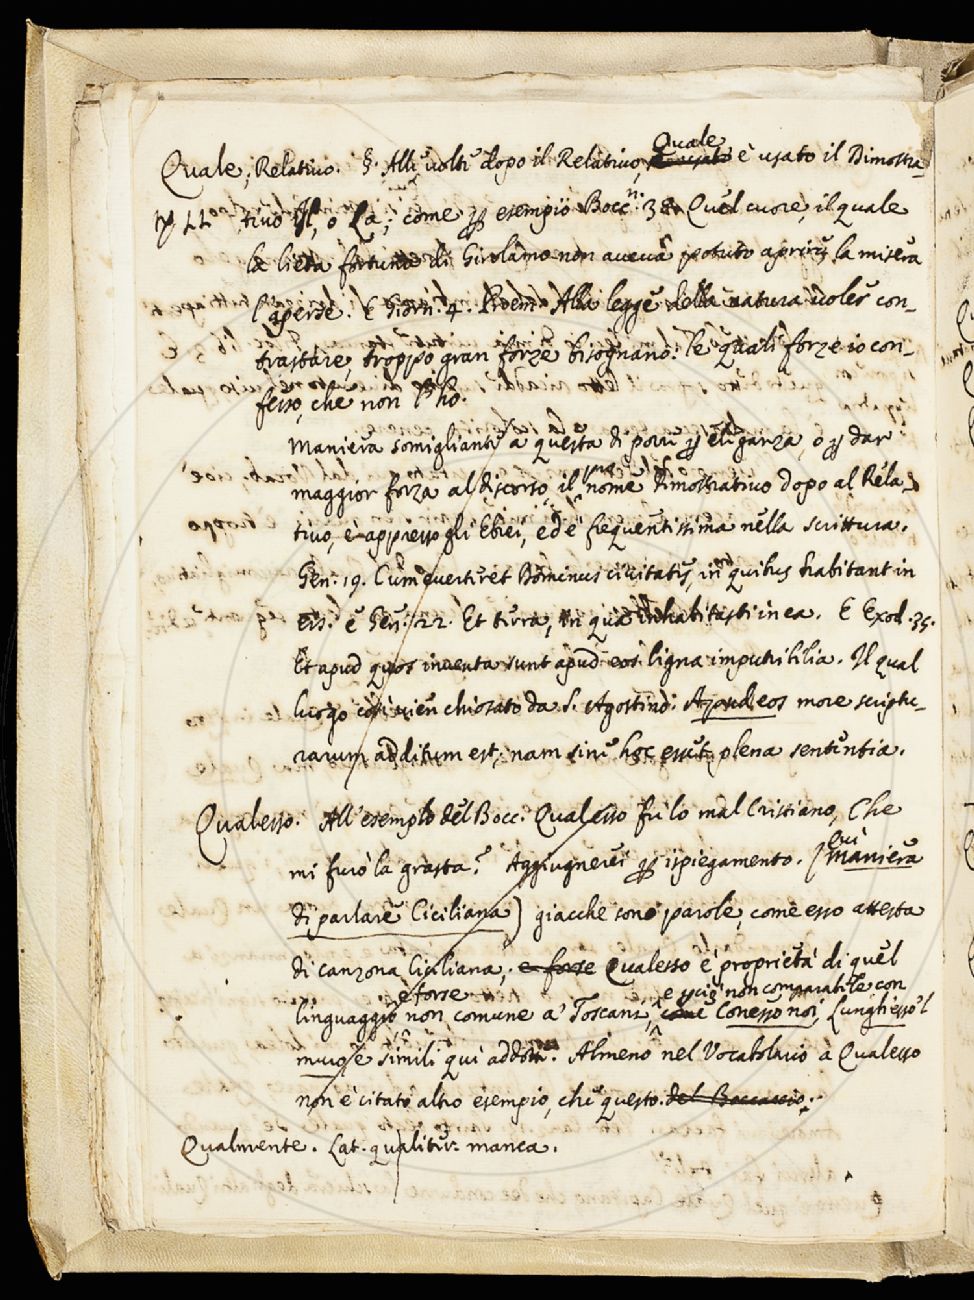 Quale
Quale, Relativo. §. Alle volte dopo il Relativo, è usato è usato il Dimostra-
tivo Il, o La; come per esempio Bocc. n. 38. Quel cuore, il quale
la lieta fortuna di Girolamo non aveva potuto aprire, la misera
l'aperse. E Giorn. 4. Proem. Alla legge della natura voler con-
trastare, troppo gran forze bisognano: le quali forze io con-
fesso, che non l'ho.
Maniera somigliante a questa di porre per eleganza, o per dar
maggior forza al discorso, il nome Dimostrativo dopo al Rela-
tivo, è appresso gli Ebrei, ed è frequentissima nella scrittura.
Gen: 19. Cum everteret Dominus civitates, in quibus habitant in
eis. e Gen: 22. Et terra, in qua inhabitasti in ea. E Exod. 35.
Et apud quos inventa sunt apud eos ligna imputribilia. Il qual
luogo così vien chiosato da S. Agostino: Apud eos more scriptu-
rarum additum est; nam sine hoc esset plena sententia.
Qualesso. All'esempio del Bocc: Qualesso fu lo mal Cristiano, Che
mi furò la grasta? Aggiugnerei per ispiegamento. (Qui maniera
di parlare Ciciliana) giacche sono parole, come esso attesta
di canzona Ciciliana; e forse Qualesso è proprietà di quel
è forse e perciò non comparabile con
linguaggio, non comune a' Toscani, come Conesso noi, Lunghesso 'l
muro, e simili qui addotti. Almeno nel Vocabolario a Qualesso
non è citato altro esempio, che questo. del Boccaccio.
Qualmente. Lat. qualiter. manca.